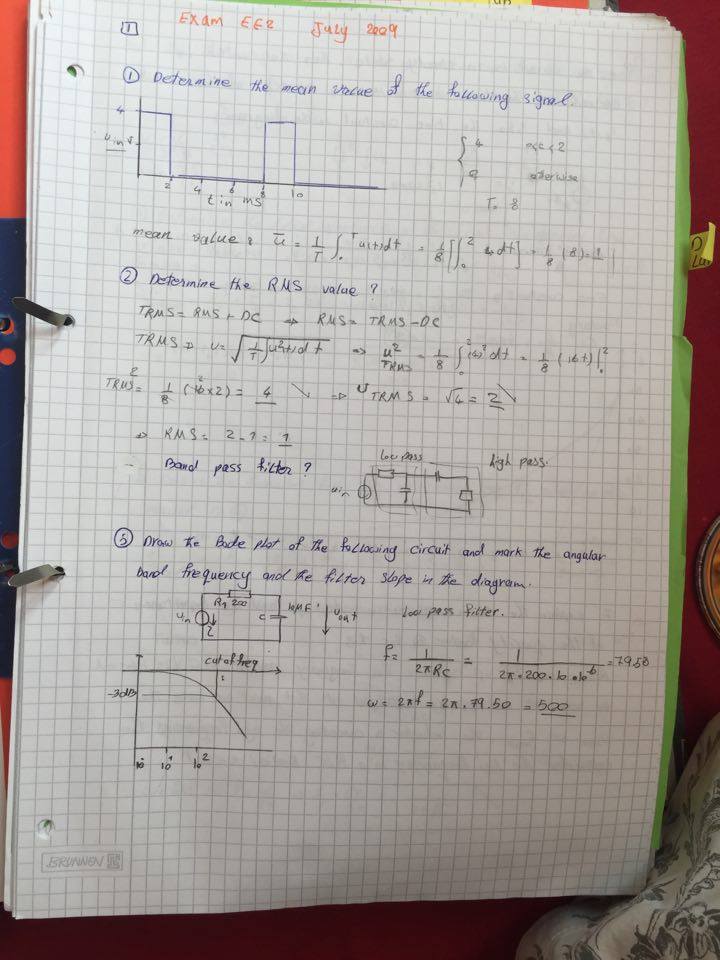 1
Exam EE2 July 2009
① Determine the mean value of the following signal.
4
u in V
2 4 6 8 10
t in ms
{ 4 0<t<2
otherwise
T= 8
mean value: ū = 1/T ∫₀ᵀ u(t)dt = 1/8 [∫₀² 4 dt] = 1/8 (8) = 1
② Determine the RMS value?
TRMS = RMS + DC ⇒ RMS = TRMS - DC
TRMS ⇒ U = √(1/T ∫u²(t) dt) ⇒ U²TRMS = 1/8 ∫₀² (4)² dt = 1/8 (16 t)|₀²
TRMS² = 1/8 (16×2) = 4 ⇒ UTRMS = √4 = 2
⇒ RMS = 2-1 = 1
Band pass filter?
low pass
high pass.
uin
③ Draw the Bode plot of the following circuit and mark the angular
band frequency and the filter slope in the diagram.
R1 200
10μF
uin
C
uout
Low pass filter.
f = 1/2πRC = 1/2π·200·10·10⁻⁶ = 79.50
ω = 2πf = 2π·79.50 = 500
cut of freq
-3dB
10° 10¹ 10²
BRUNNEN